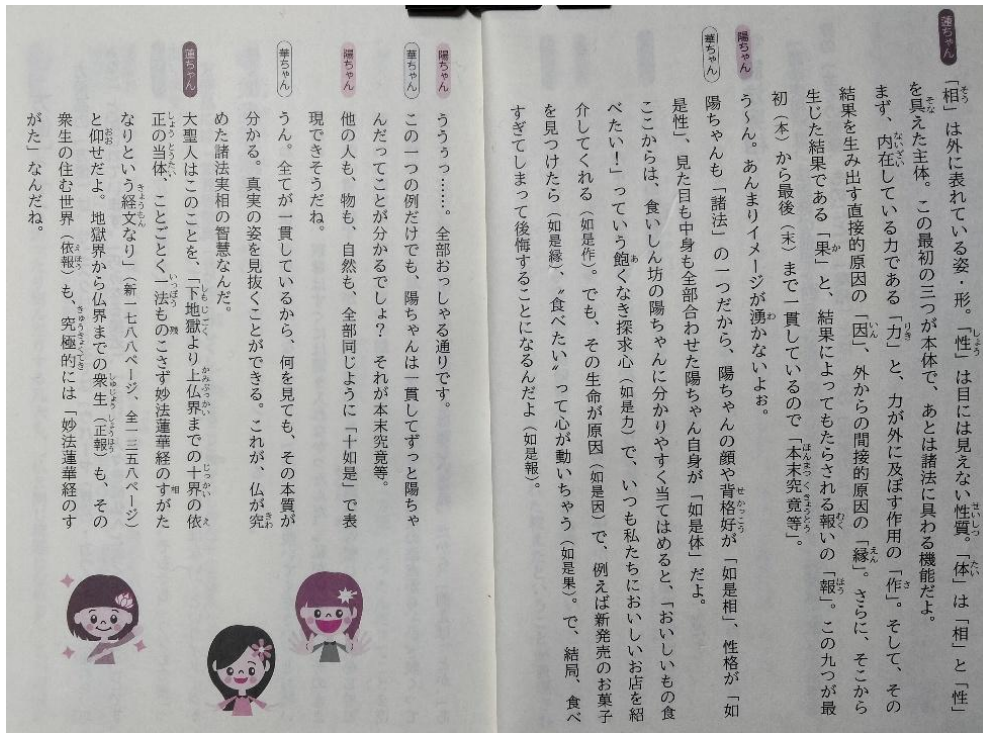 蓮ちゃん
「相」は外に表れている姿・形。「性」は目には見えない性質。「体」は「相」と「性」
を具えた主体。この最初の三つが本体で、あとは諸法に具わる機能だよ。
まず、内在している力である「力」と、力が外に及ぼす作用の「作」。そして、その
結果を生み出す直接的原因の「因」、外からの間接的原因の「縁」。さらに、そこから
生じた結果である「果」と、結果によってもたらされる報いの「報」。この九つが最
初（本）から最後（末）まで一貫しているので「本末究竟等」。
陽ちゃん
う～ん。あんまりイメージが湧かないよぉ。
華ちゃん
陽ちゃんも「諸法」の一つだから、陽ちゃんの顔や背格好が「如是相」、性格が「如
是性」、見た目も中身も全部合わせた陽ちゃん自身が「如是体」だよ。
ここからは、食いしん坊の陽ちゃんに分かりやすく当てはめると、「おいしいもの食
べたい！」っていう飽くなき探求心（如是力）で、いつも私たちにおいしいお店を紹
介してくれる（如是作）。でも、その生命が原因（如是因）で、例えば新発売のお菓子
を見つけたら（如是縁）、〝食べたい〟って心が動いちゃう（如是果）。で、結局、食べ
すぎてしまって後悔することになるんだよ（如是報）。
陽ちゃん
ううぅっ……。全部おっしゃる通りです。
華ちゃん
この一つの例だけでも、陽ちゃんは一貫してずっと陽ちゃ
んだってことが分かるでしょ？　それが本末究竟等。
陽ちゃん
他の人も、物も、自然も、全部同じように「十如是」で表
現できそうだね。
華ちゃん
うん。全てが一貫しているから、何を見ても、その本質が
分かる。真実の姿を見抜くことができる。これが、仏が究
めた諸法実相の智慧なんだ。
蓮ちゃん
大聖人はこのことを、「下地獄より上仏界までの十界の依
正の当体、ことごとく一法ものこさず妙法蓮華経のすがた
なりという経文なり」（新一七八八ページ、全一三五八ページ）
と仰せだよ。地獄界から仏界までの衆生（正報）も、その
衆生の住む世界（依報）も、究極的には「妙法蓮華経のす
がた」なんだね。